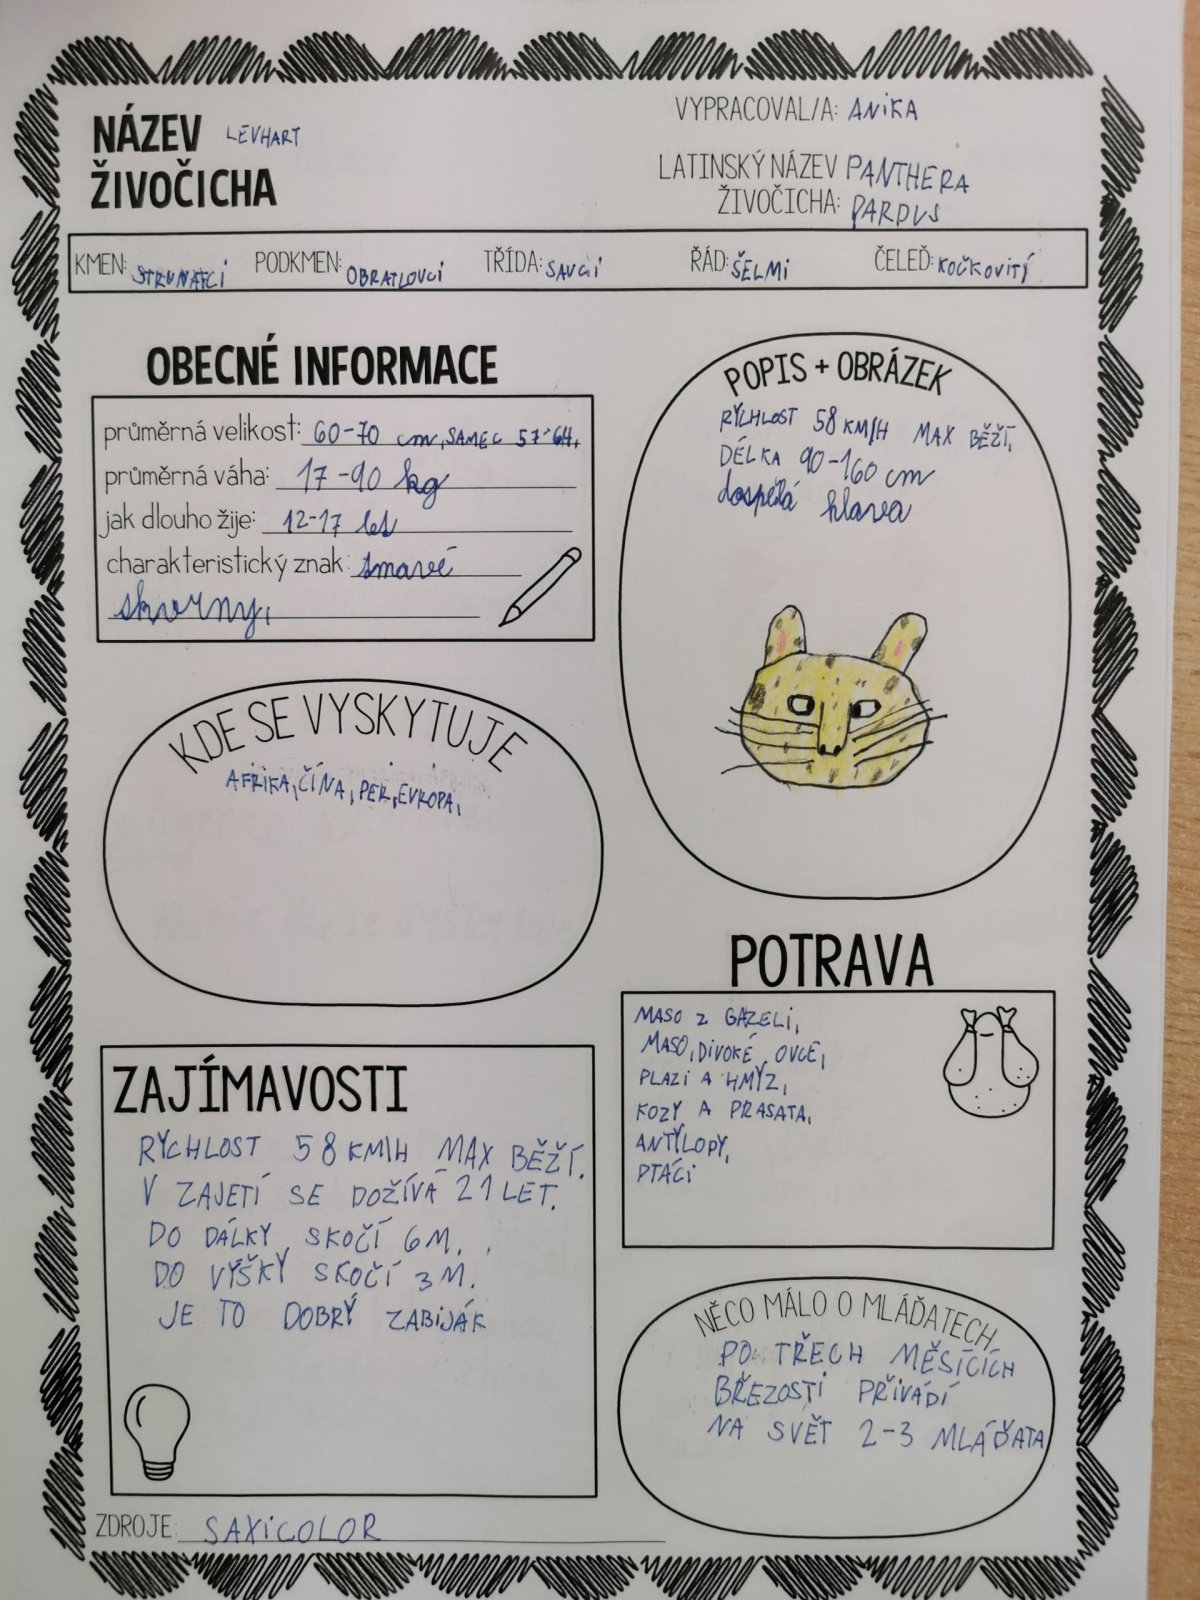 NÁZEV LEVHART
ŽIVOČICHA
VYPRACOVAL/A: ANIKA
LATINSKÝ NÁZEV PANTHERA
ŽIVOČICHA: PARDUS
KMEN: STRUNATCI PODKMEN: OBRATLOVCI TŘÍDA: SAVCI ŘÁD: ŠELMI ČELEĎ: KOČKOVITÝ
OBECNÉ INFORMACE
průměrná velikost: 60-70 cm, SAMEC 57-64,
průměrná váha: 17-90 kg
jak dlouho žije: 12-17 let
charakteristický znak: tmavé
skvrny,
POPIS + OBRÁZEK
RYCHLOST 58 KM/H MAX BĚŽÍ,
DÉLKA 90-160 cm
dospělá hlava
KDE SE VYSKYTUJE
AFRIKA, ČÍNA, PER, EVROPA,
POTRAVA
MASO Z GAZELI,
MASO, DIVOKÉ OVCE,
PLAZI A HMYZ,
KOZY A PRASATA,
ANTYLOPY,
PTÁCI
ZAJÍMAVOSTI
RYCHLOST 58 KM/H MAX BĚŽÍ.
V ZAJETÍ SE DOŽÍVÁ 21 LET.
DO DÁLKY SKOČÍ 6M.
DO VÝŠKY SKOČÍ 3M.
JE TO DOBRÝ ZABIJÁK
NĚCO MÁLO O MLÁĎATECH
PO TŘECH MĚSÍCÍCH
BŘEZOSTI PŘIVÁDÍ
NA SVĚT 2-3 MLÁĎATA
ZDROJE: SAXICOLOR